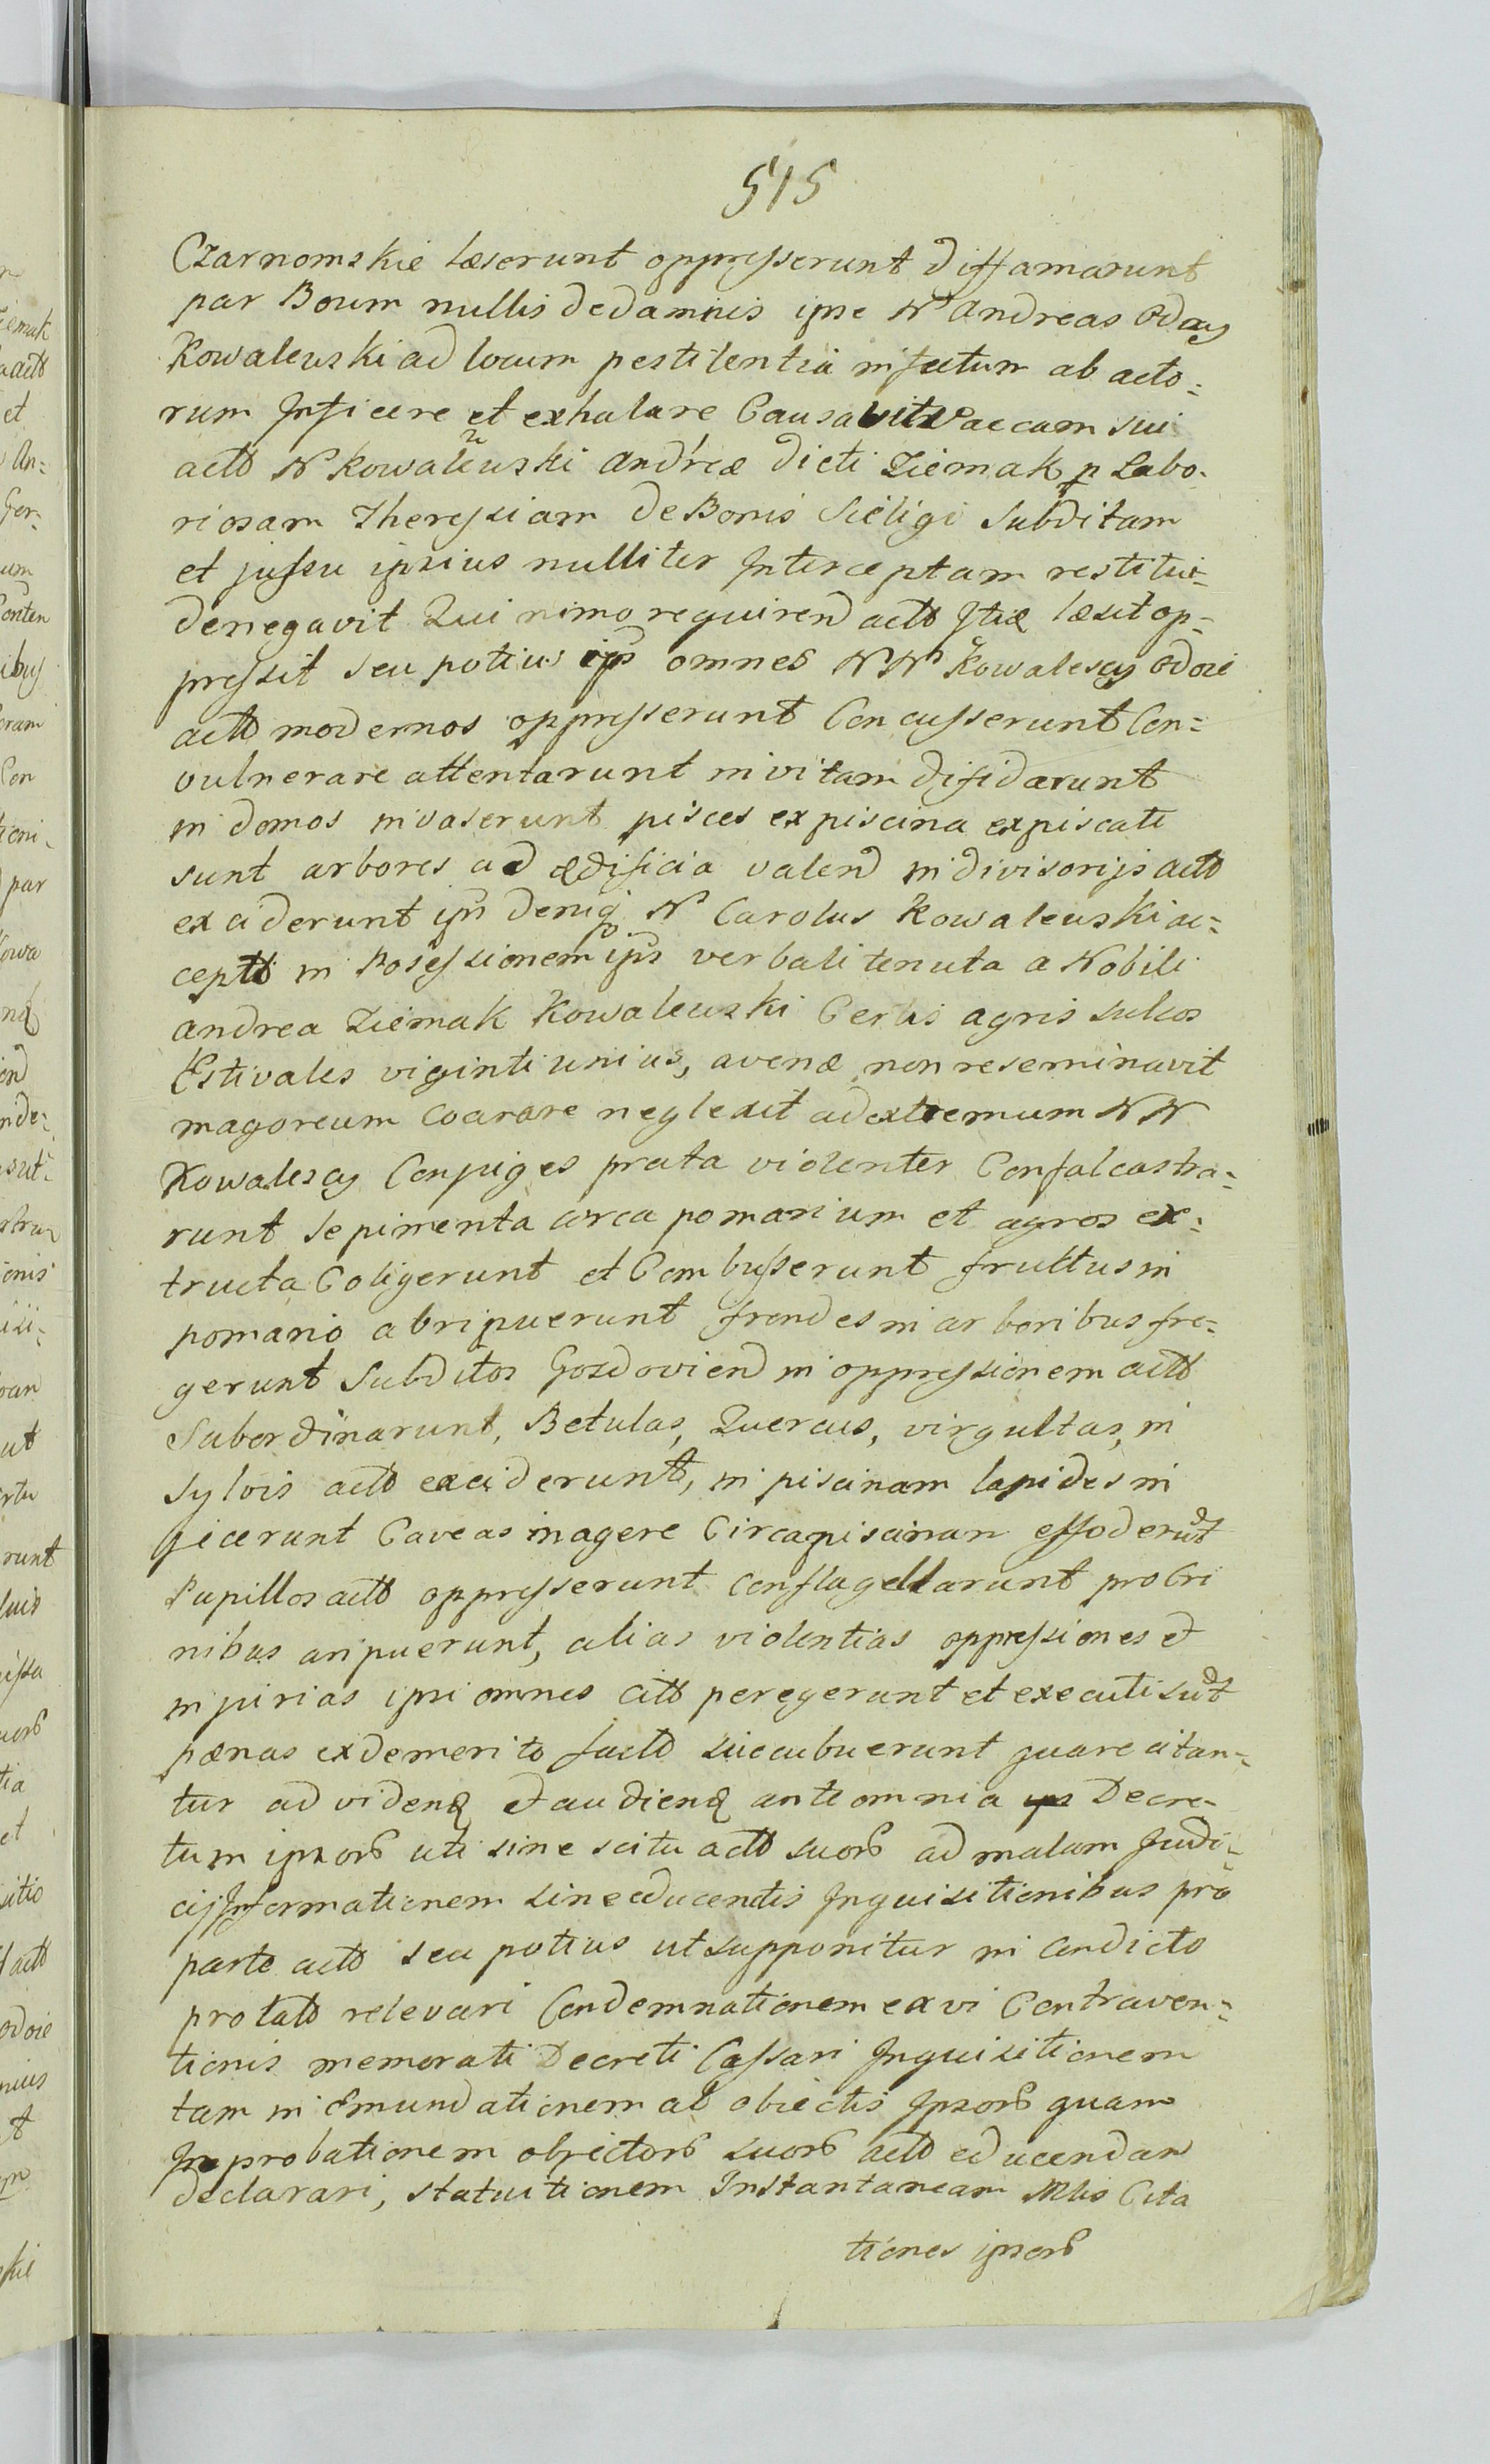 515
Czarnomskie læserunt oppresserunt diffamarunt
par Boum nullis dedamnis ipse N Andreas Odacy
Kowalewski ad locum pestilentia infectum ab acto=
rum Inficere et exhalare Causavit Vaccam sui
acto N Kowalewski Andreæ dicti Ziemak p Labo-
riosam Theressiam de Bonis Sieligi Subditam
et jussu ipsius nulliter Interceptam restitui=
denegavit Quinimo requirend acto Jtiæ læsit op=
pressit seu potius ipi omnes NN Kowalescy Odoie
acto modernos oppresserunt Concusserunt Con=
vulnerare attentarunt in vitam disidarunt
in domos invaserunt pisces ex piscina expiscati
sunt arbores ad ædificia valend in divisorijs acto
exciderunt ipn deniq N Carolus Kowalewski ac=
cepto in Possessionem ips verbali tenuta a Nobili
Andrea Ziemak Kowalewski Certis agris sulcos
Estivales viginti unius, avenæ non reseminavit
magoreum coarare neglexit ad extremum NN
Kowalescy Conjuges prata violenter Confalcastra=
runt sepimenta circa pomarium et agros ex=
tructa Coligerunt et Combusserunt fructus in
pomario abripuerunt frondes in arboribus fre=
gerunt Subditos Gozdoviend in oppressionem acto
Subordinarunt, Betulas, Quercus, virgultas, in
Sylvis acto exciderunt, in piscinam lapides in
jecerunt Caveas in agere Circa piscinam effoderut
Pupillos acto oppresserunt conflagellarunt pro Cri
nibus aripuerunt, alias violentias oppressiones et
injurias ipsi omnes citt peregerunt et executi sut
pœnas ex demerito facto succubuerunt quare citan=
tur ad videnq et audienq ante omnia Decre-
tum ipsorb uti sine scitu acto suorb ad malam Judi=
cij Informationem sine educentis Inquisitionibus pro
parte acto seu potius ut supponitur in condicto
prolato relevari Condemnationem ex vi Contraven=
tionis memorati Decreti Cassari Inquisitionem
tam in Emundationem ab obiectis Ipsorb quam
In probationem obiectorb suorb acto educendan
declarari, statuitionem Instantaneam Mlio Cita
tiones ipsorb